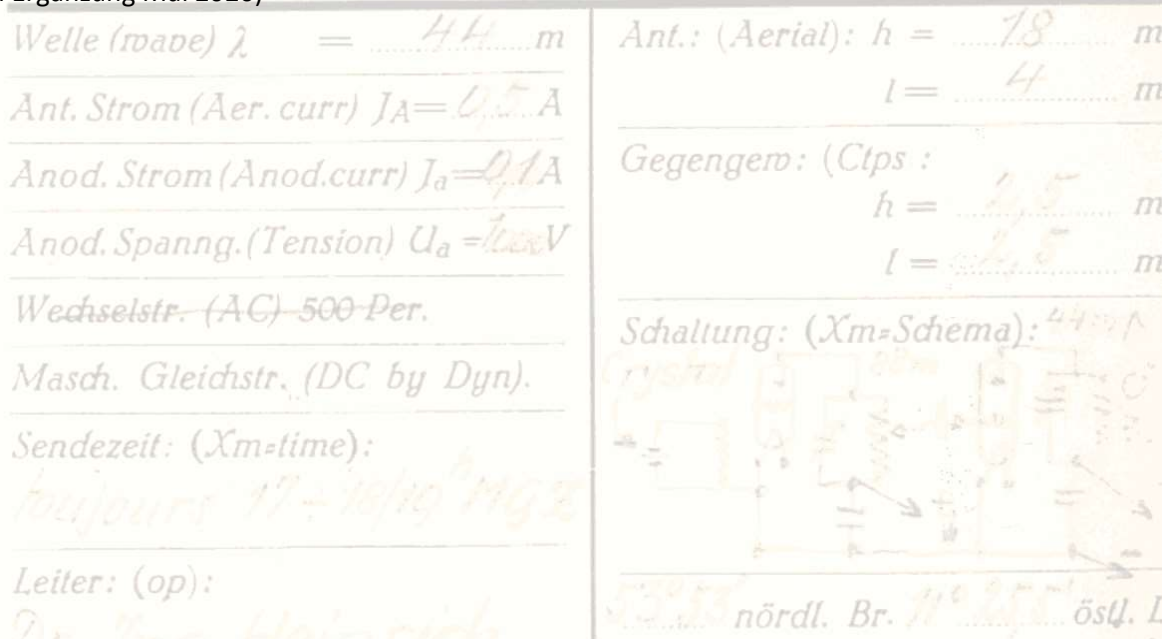 Ergänzung Mai 2020)
Welle (wave) λ = 44 m
Ant. Strom (Aer. curr) JA= 0,5 A
Anod. Strom (Anod.curr) Ja= 0,1 A
Anod. Spanng. (Tension) Ua = V
Wechselstr. (AC) 500 Per.
Masch. Gleichstr. (DC by Dyn).
Sendezeit: (Xm=time):
toujours 17 - 18/19h MGZ
Leiter: (op):
Heinrich
Ant.: (Aerial): h = 18 m
l = 4 m
Gegengew: (Ctps :
h = 2,5 m
l = 2,5 m
Schaltung: (Xm=Schema):
Crystal
53°53' nördl. Br. 11° östl. L